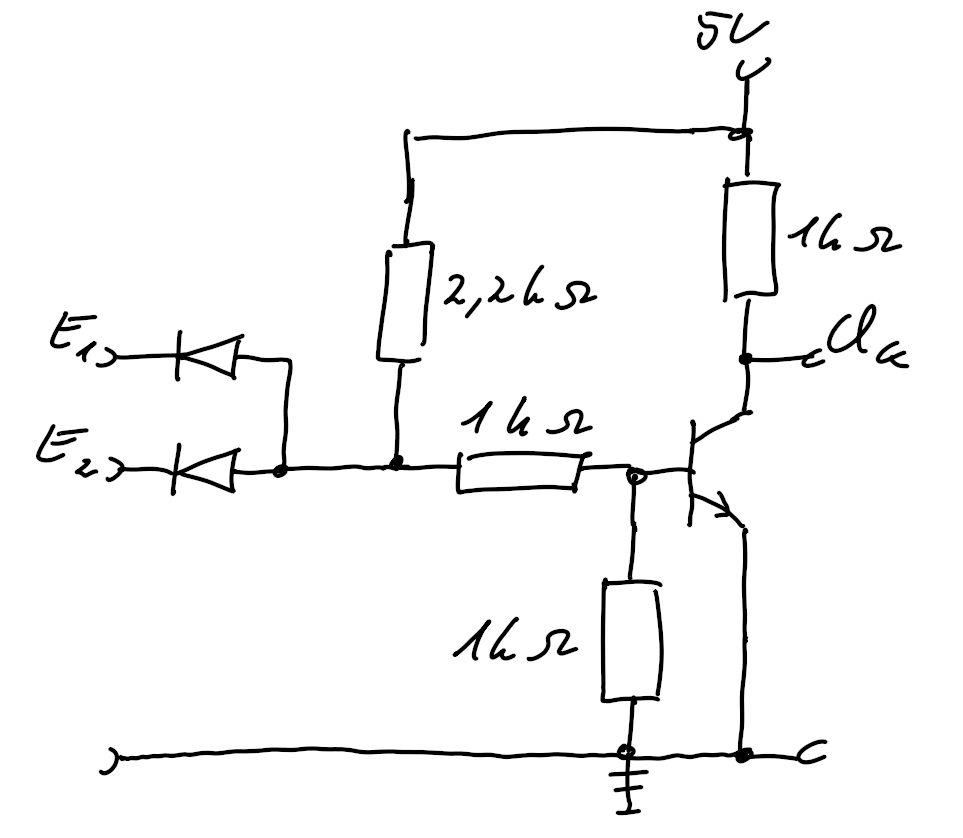 5V
1kΩ
2,2kΩ
E₁
Ua
1kΩ
E₂
1kΩ